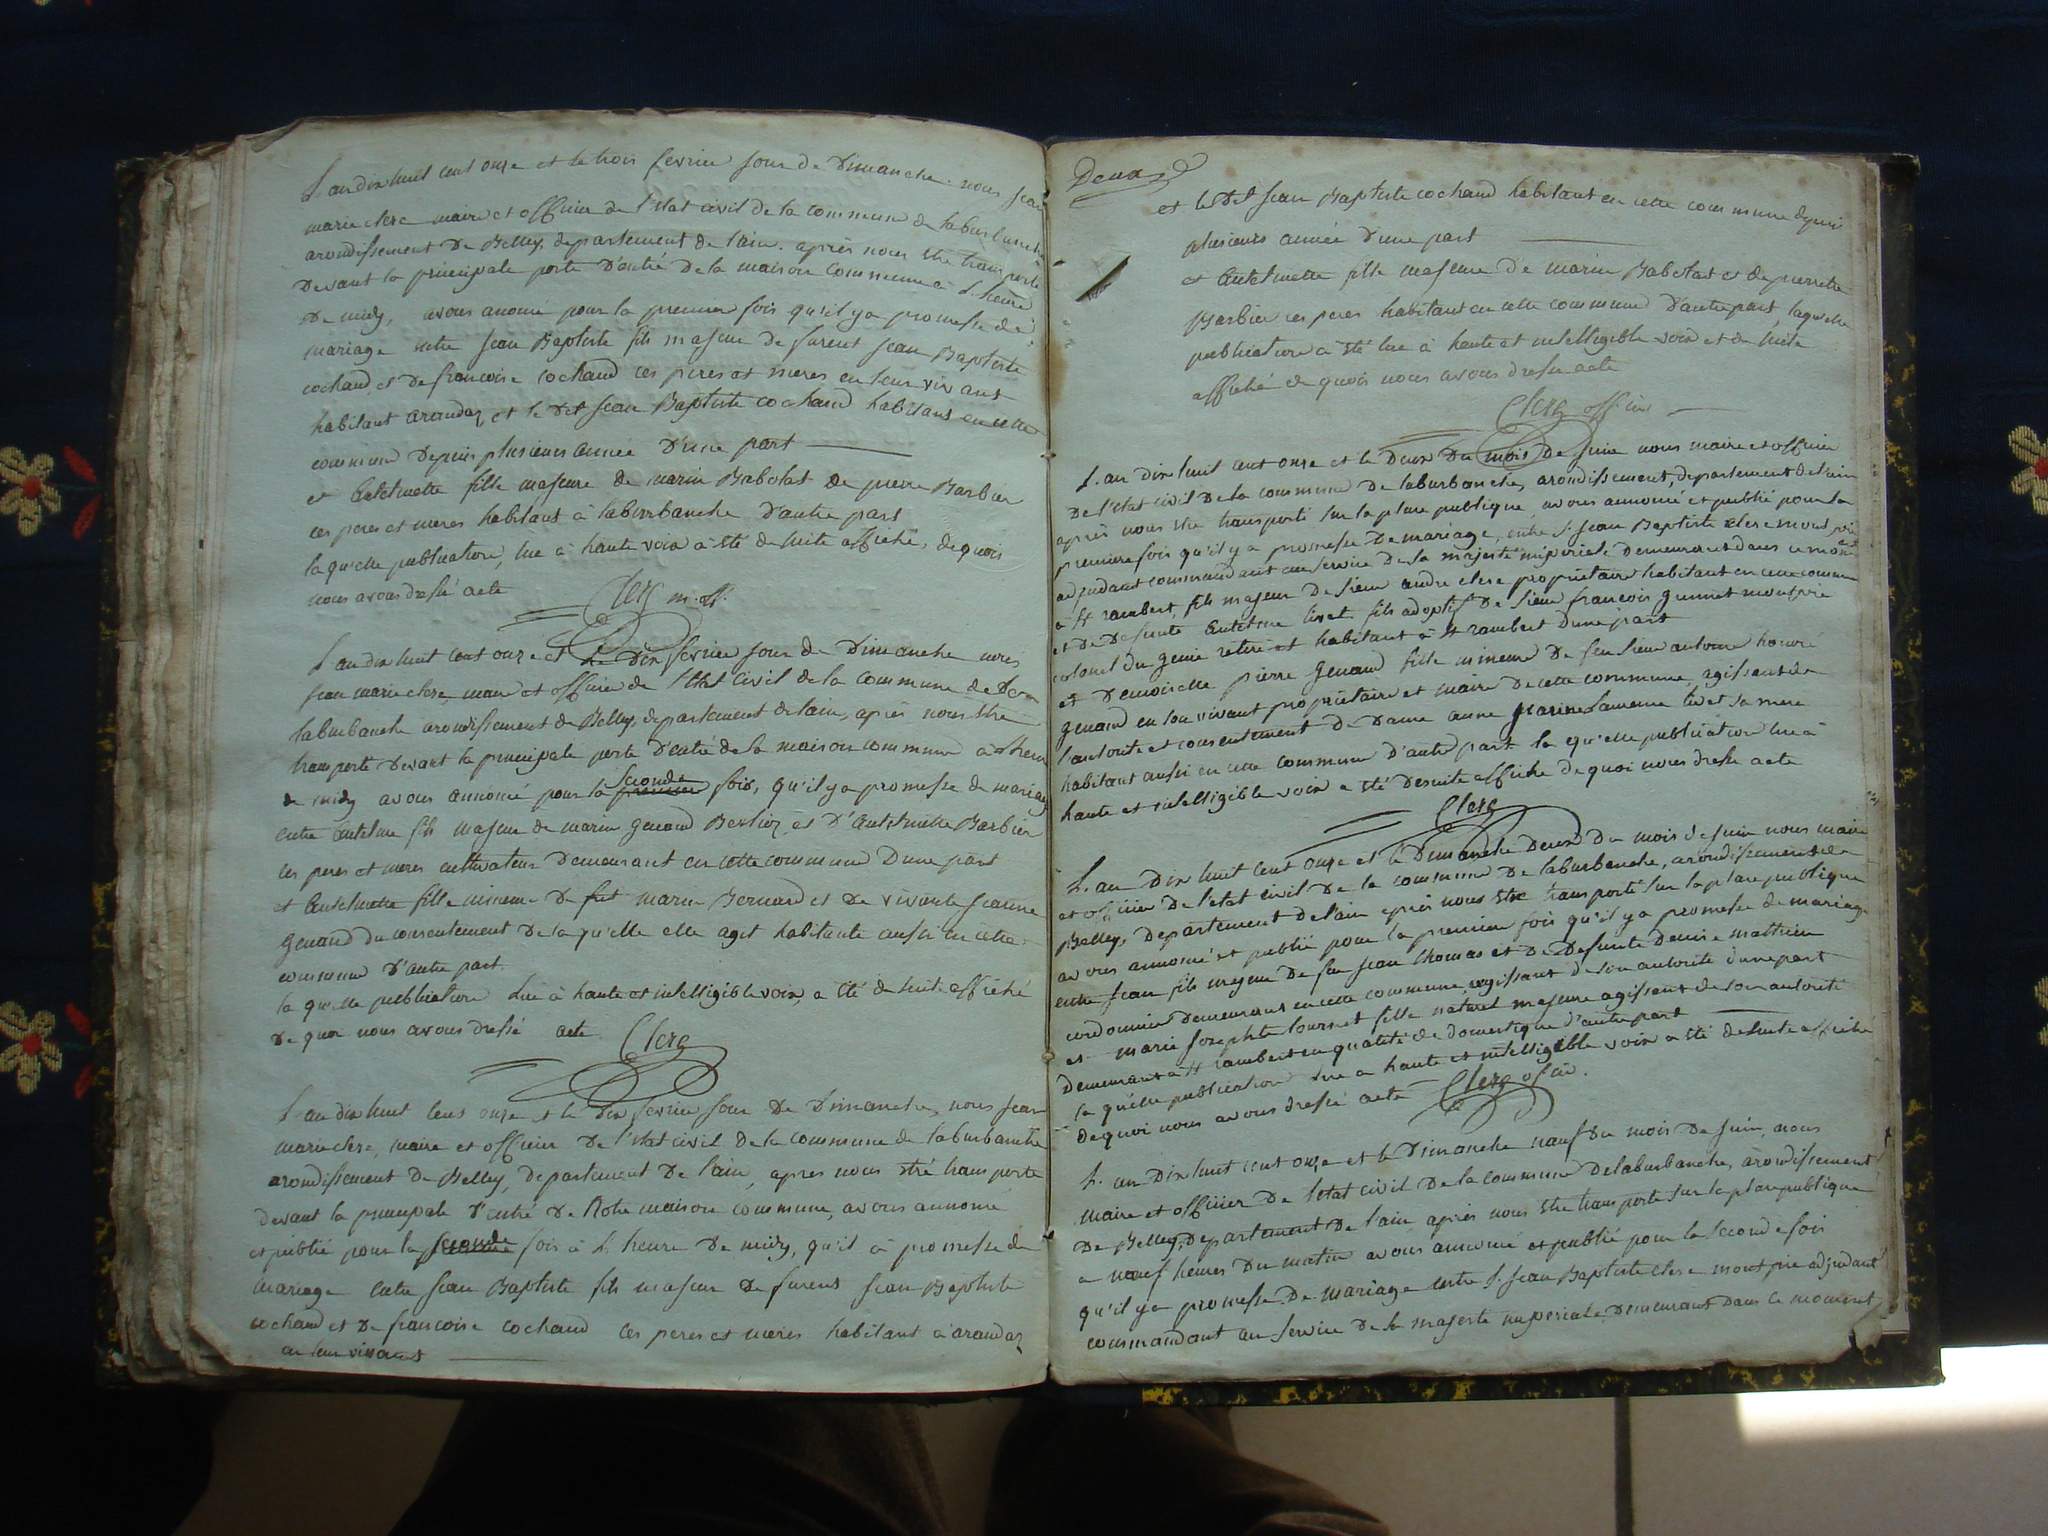 L'an dix huit cent onze et le trois fevrier jour de Dimanche nous jean
marie clerc maire et officier de l'etat civil de la commune de laburbanche
arondissement de Belley, departement de l'ain. après nous etre transporté
devant la principale porte d'entré de la maison commune à l'heure
de midy, avons anoncé pour la premier fois qu'il y a promesse de
mariage entre jean Baptiste fils majeur de furent jean Baptiste
cochand, et de francoise cochand ces peres et meres en leur vivant
habitant arandaz, et le dit jean Baptiste cochand habitans en cette
commune depuis plusieures année d'une part
et antelmette fille majeure de marin Babolat de pierre Barbier
ces peres et meres habitans à laburbanche d'autre part
la qu'elle publication, lue à haute voix a été de suite affiché, de quois
nous avons dressé acte Clerc m. off.
L'an dix huit cent onze et le dix fevrier jour de Dimanche nous
jean marie clerc, maire et officier de l'etat civil de la commune de
laburbanche arondissement de Belley, departement de lain, après nous etre
transporté devant la principale porte d'entré de la maison commune à l'heure
de midy avons annoncé pour la premier seconde fois, qu'il y a promesse de mariage
entre antelme fils majeur de marin genand Berlioz et d'antelmette Barbier
ces peres et meres cultivateur demeurant en cette commune d'une part
et antelmette fille mineure de fut marin Bernard et de vivante jeanne
genand du consentement de la qu'elle elle agit habitante aussi en cette
commune d'autre part.
la qu'elle publication lue à haute et intelligible voix, a été de suite affiché
de quoi nous avons dressé acte Clerc
L'an dix huit cens onze et le dix fevrier jour de Dimanche, nous jean
marie clerc, maire et officier de l'etat civil de la commune de laburbanche
arondissement de Belley, departement de l'ain, après nous etré transporté
devant la principale d'entré de Notre maison commune, avons annoncé
et publié pour la seconde fois à l'heure de midy, qu'il à promesse de
mariage entre jean Baptiste fils majeur de furent jean Baptiste
cochand et de francoise cochand ces peres et meres habitant à arandaz
en leur vivant
Deux
et le dit jean Baptiste cochand habitant en cette commune depuis
plusieurs année d'une part
et antelmette fille majeure de marin Babolat et de pierrette
Barbier ces peres habitant en cette commune d'autre part, laquelle
publication à été lue à haute et intelligible voix et de suite
affiché de quois nous avons dressé acte
Clerc officier
L'an dix huit cent onze et le deux du mois de juin nous maire et officier
de l'etat civil de la commune de laburbanche, arondissement, departement de l'ain
après nous etre transporté sur la place publique, avons annoncé et publié pour la
premiere fois qu'il y a promesse de mariage, entre s. jean Baptiste clerc
adjudant commandant au service de sa majesté imperiale demeurant dans ce moment
à st rambert, fils majeur de sieur andre clerc propriétaire habitant en cette commune
et de defunte antelme fils adoptif de sieur francois
colonel du genie retiré et habitant à st rambert d'une part
et demoiselle pierre genand fille mineure de feu sieur antoine honoré
genand en son vivant propriétaire et maire de cette commune, agissant de
l'autorité et consentement de dame anne sa mere
habitant aussi en cette commune d'autre part la qu'elle publication lue à
haute et intelligible voix a été desuite affiché de quoi nous dressé acte
Clerc
L'an dix huit cent onze et le dimanche deux du mois de juin nous maire
et officier de l'etat civil de la commune de laburbanche, arondissement de
Belley, departement de l'ain après nous etre transporté sur la place publique
avons annoncé et publié pour la premiere fois qu'il y a promesse de mariage
entre jean fils majeur de feu jean thomas et de defunte denise mathieu
cordonnier demeurans en cette commune, agissant de son autorité d'une part
et marie josephte fille naturel majeure agissant de son autorité
demeurant a st rambert en qualité de domestique d'autre part
la qu'elle publication lue a haute et intelligible voix a été de suite affiché
de quoi nous avons dressé acte Clerc officié.
L'an dix huit cent onze et le dimanche neuf du mois de juin, nous
maire et officier de l'etat civil de la commune de laburbanche, arondissement
de Belley, departement de l'ain après nous etre transporté sur la place publique
a neuf heures du matin avons annoncé et publié pour la seconde fois
qu'il y a promesse de mariage entre s. jean Baptiste clerc adjudant
commandant au service de sa majesté imperiale, demeurant dans ce moment